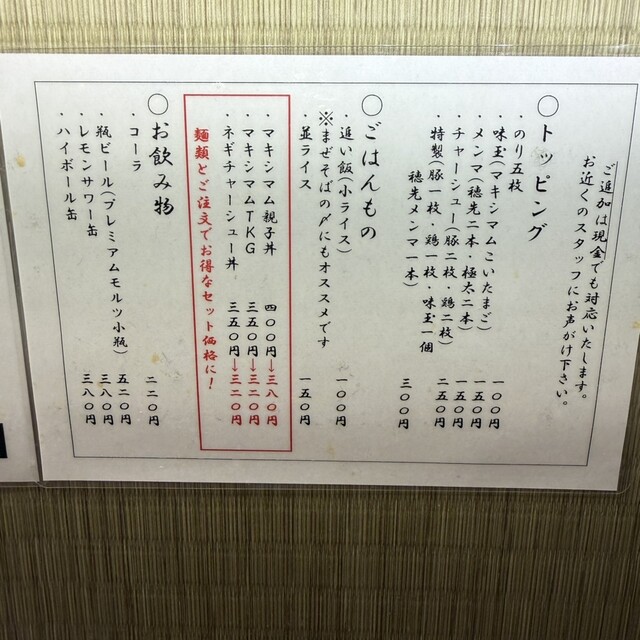 ご追加は現金でも対応いたします。
お近くのスタッフにお声がけ下さい。
○トッピング
・のり五枚 一〇〇円
・味玉(マキシマムこいたまご) 一五〇円
・メンマ(穂先二本・極太二本) 一五〇円
・チャーシュー(豚二枚・鶏二枚) 二五〇円
・特製(豚一枚・鶏一枚・味玉一個
穂先メンマ一本) 三〇〇円
○ごはんもの
・追い飯(小ライス) 一〇〇円
※まぜそばの〆にもオススメです
・並ライス 一五〇円
・マキシマム親子丼 四〇〇円→三八〇円
・マキシマムTKG 三五〇円→三二〇円
・ネギチャーシュー丼 三五〇円→三二〇円
麺類とご注文でお得なセット価格に!
○お飲み物
・コーラ 二二〇円
・瓶ビール(プレミアムモルツ小瓶) 五二〇円
・レモンサワー缶 三八〇円
・ハイボール缶 三八〇円